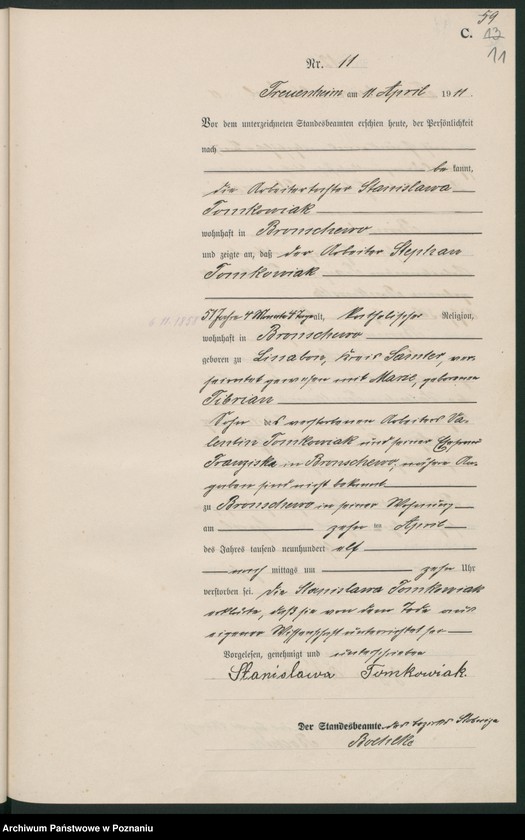 59
C. 13
11
Nr. 11
Treuenheim am 11 April 1911.
Vor dem unterzeichneten Standesbeamten erschien heute, der Persönlichkeit
nach
be kannt,
die Arbeitertochter Stanislawa
Tomkowiak
wohnhaft in Bronschewo
und zeigte an, daß der Arbeiter Stephan
Tomkowiak
51 Jahre 4 Monate 4 Tage alt, katholischer Religion,
wohnhaft in Bronschewo
geboren zu Kreis Samter, ver-
heiratet gewesen mit Marie, geborenen
Tibrian
Sohn des verstorbenen Arbeiters Va-
lentin Tomkowiak und seiner Ehefrau
Franziska in Bronschewo, nähere An-
gaben sind nicht bekannt
zu Bronschewo in seiner Wohnung
am zehn ten April
des Jahres tausend neunhundert elf
nach mittags um zehn Uhr
verstorben sei. Die Stanislawa Tomkowiak
erklärte, daß sie von dem Tode aus
eigener Wissenschaft unterrichtet sei
Vorgelesen, genehmigt und unterschrieben
Stanislawa Tomkowiak.
Der Standesbeamte.
Archiwum Państwowe w Poznaniu